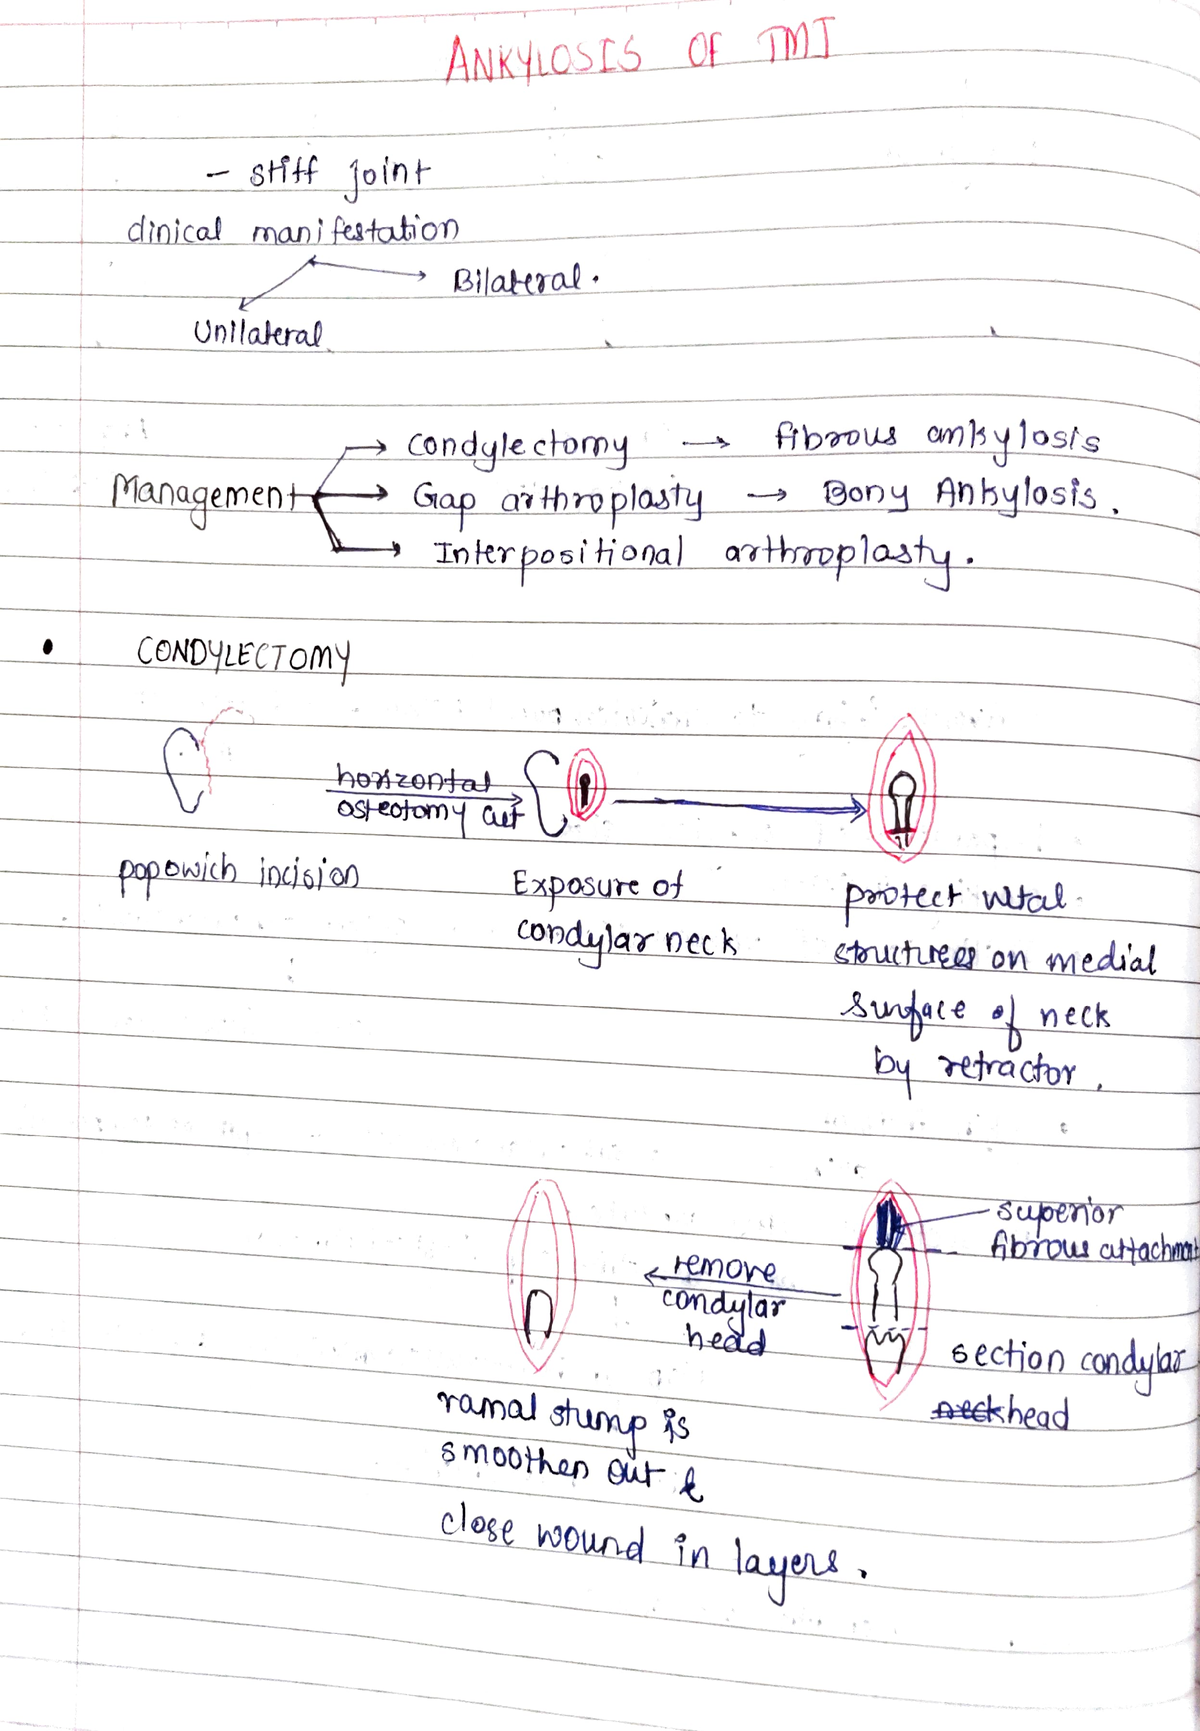 ANKYLOSIS OF TMJ
- stiff joint
clinical manifestation
Bilateral.
Unilateral
Management
condylectomy → fibrous ankylosis
Gap arthroplasty → Bony Ankylosis.
Interpositional arthroplasty.
• CONDYLECTOMY
horizontal
osteotomy cut
popowich incision
Exposure of
condylar neck
protect vital
structures on medial
surface of neck
by retractor.
superior
fibrous attachment
remove
condylar
head
section condylar
neck head
ramal stump is
smoothen out &
close wound in layers.